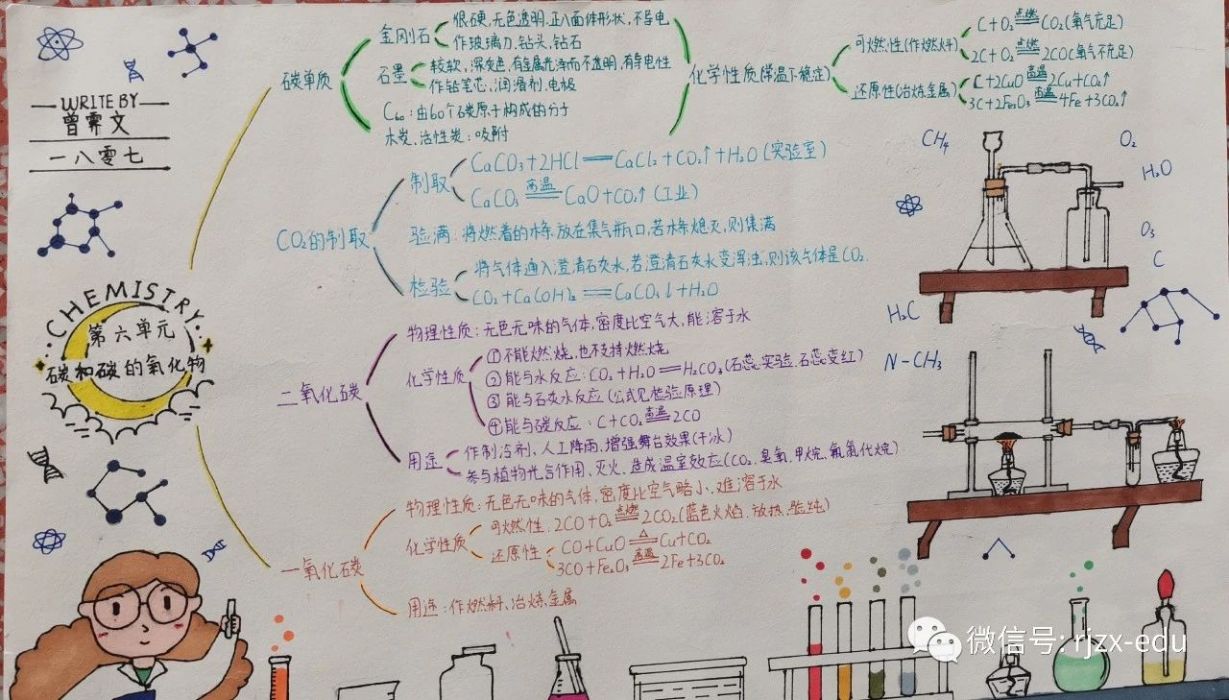 WRITE BY
曾霁文
一八零七
CHEMISTRY
第六单元
碳和碳的氧化物
碳单质
金刚石
很硬,无色透明.正八面体形状,不导电
作玻璃刀.钻头,钻石
石墨
较软,深灰色,有金属光泽而不透明,有导电性
作铅笔芯,润滑剂,电极
C₆₀:由60个碳原子构成的分子
木炭,活性炭:吸附
化学性质(常温下稳定)
可燃性(作燃料)
C+O₂ 点燃 CO₂(氧气充足)
2C+O₂ 点燃 2CO(氧气不充足)
还原性(冶炼金属)
C+2CuO 高温 2Cu+CO₂↑
3C+2Fe₂O₃ 高温 4Fe+3CO₂↑
CO₂的制取
制取
CaCO₃+2HCl═CaCl₂+CO₂↑+H₂O(实验室)
CaCO₃ 高温 CaO+CO₂↑(工业)
验满:将燃着的木条放在集气瓶口,若木条熄灭,则集满
检验
将气体通入澄清石灰水,若澄清石灰水变浑浊,则该气体是CO₂.
CO₂+Ca(OH)₂═CaCO₃↓+H₂O
二氧化碳
物理性质:无色无味的气体,密度比空气大,能溶于水
化学性质
①不能燃烧,也不支持燃烧
②能与水反应:CO₂+H₂O═H₂CO₃(石蕊实验.石蕊变红)
③能与石灰水反应(公式见检验原理)
④能与碳反应:C+CO₂ 高温 2CO
用途
作制冷剂,人工降雨,增强舞台效果(干冰)
参与植物光合作用,灭火,造成温室效应(CO₂.臭氧.甲烷.氟氯代烷)
一氧化碳
物理性质:无色无味的气体,密度比空气略小,难溶于水
化学性质
可燃性:2CO+O₂ 点燃 2CO₂(蓝色火焰.放热.验纯)
还原性
CO+CuO △ Cu+CO₂
3CO+Fe₂O₃ 高温 2Fe+3CO₂
用途:作燃料、冶炼金属
CH₄
O₂
H₂O
O₃
C
H₂C
N-CH₃
微信号: rjzx-edu